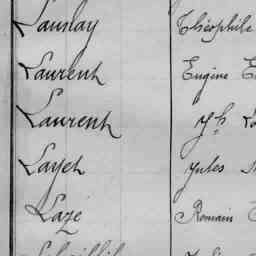 Launay Théophile
Laurent Eugène
Laurent Jh
Layet Jules
Lazé Romain